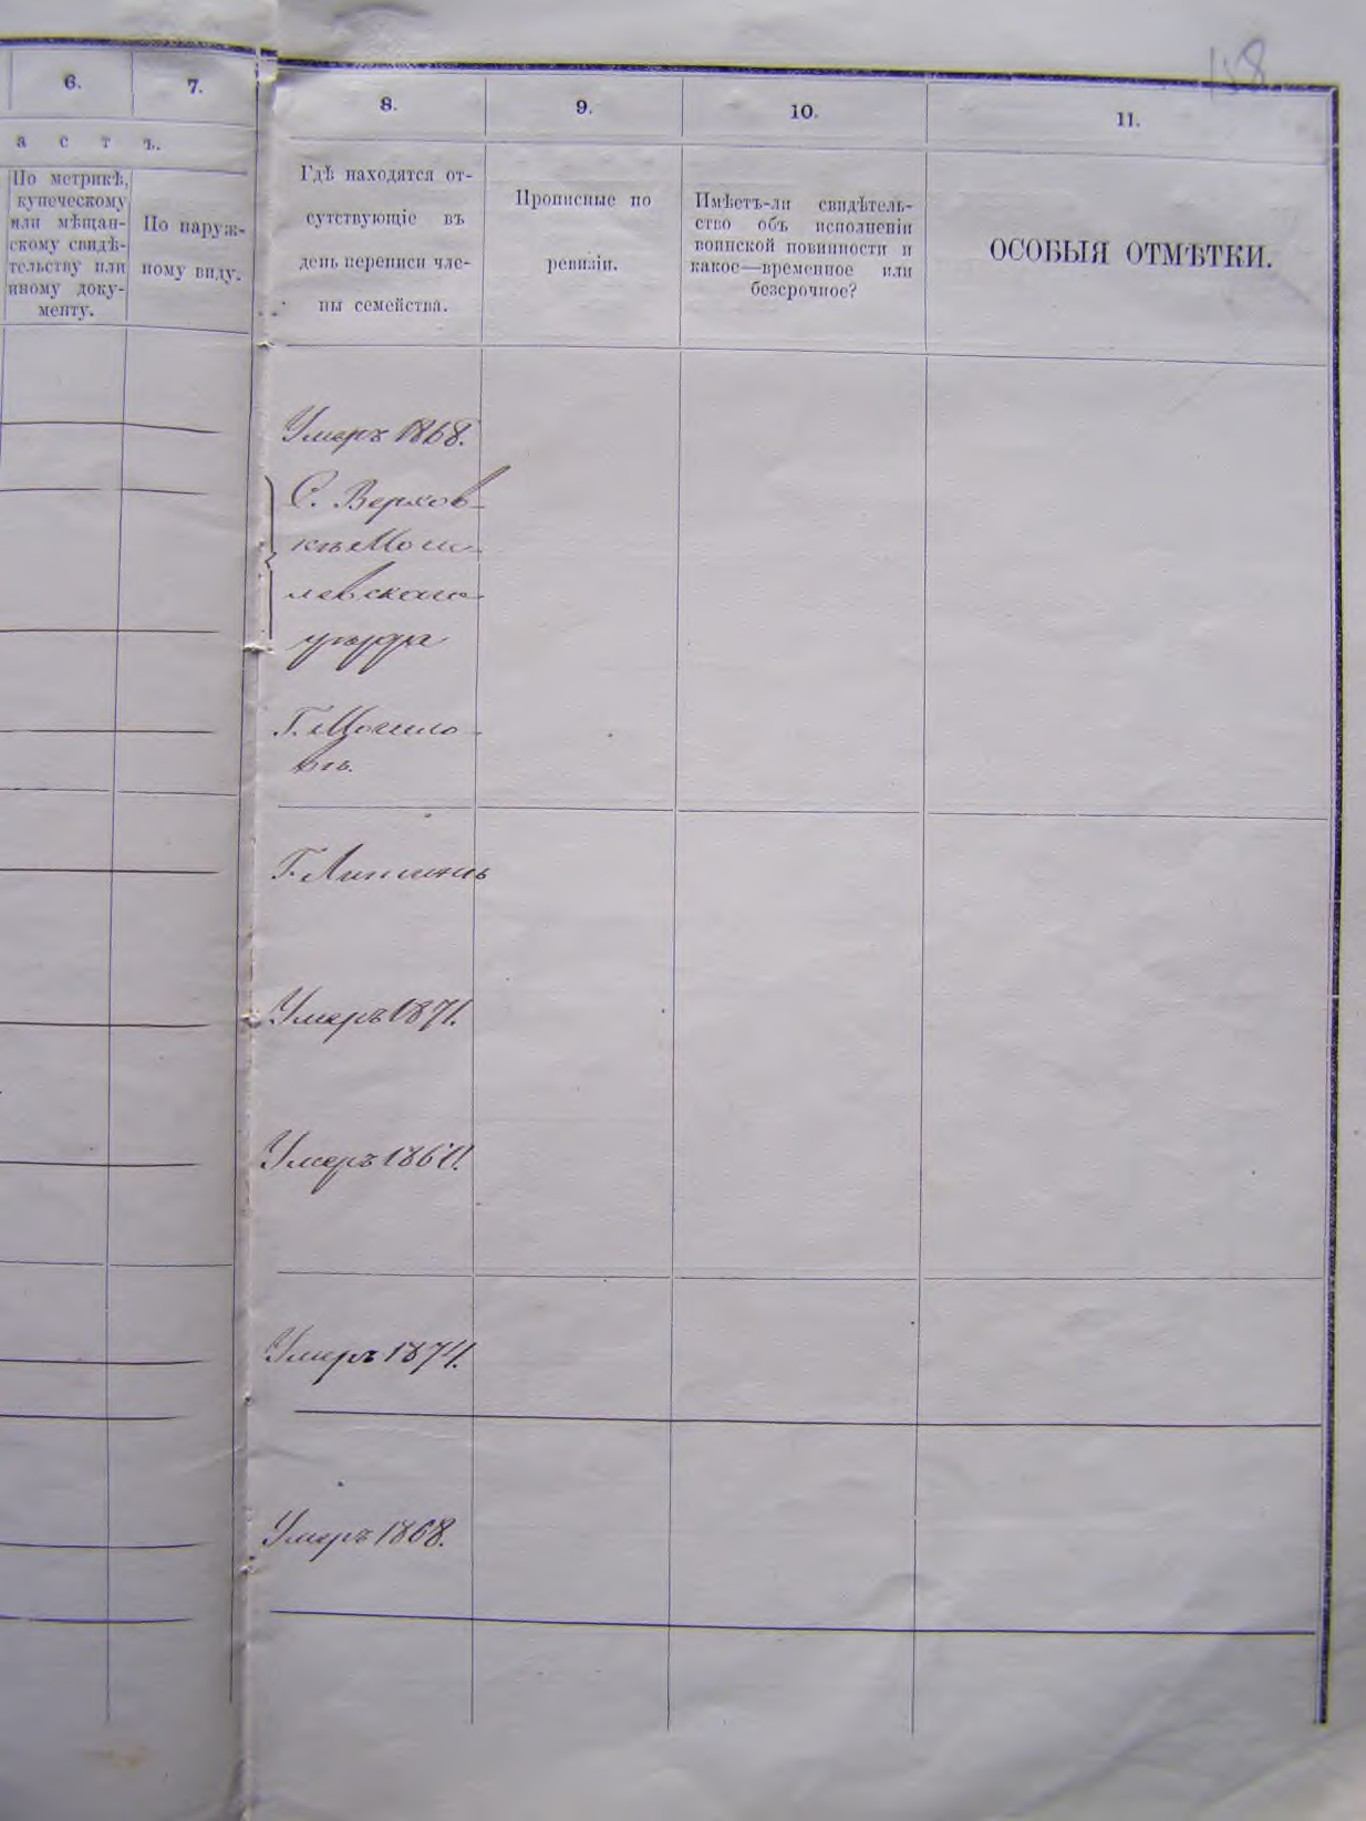 158
6.
7.
8.
9.
10.
11.
а с т ъ.
По метрикѣ,
купеческому
или мѣщан-
скому свидѣ-
тельству или
иному доку-
менту.
По наруж-
ному виду.
Гдѣ находятся от-
сутствующіе въ
день переписи чле-
ны семейства.
Прописные по
ревизіи.
Имѣетъ-ли свидѣтель-
ство объ исполненіи
воинской повинности и
какое—временное или
безсрочное?
ОСОБЫЯ ОТМѢТКИ.
Умеръ 1868.
С. Верхов-
кѣ Моги-
левскаго
уѣзда
Г. Могиле-
вѣ.
Г.
Умеръ 1871.
Умеръ
Умеръ 1874.
Умеръ 1868.